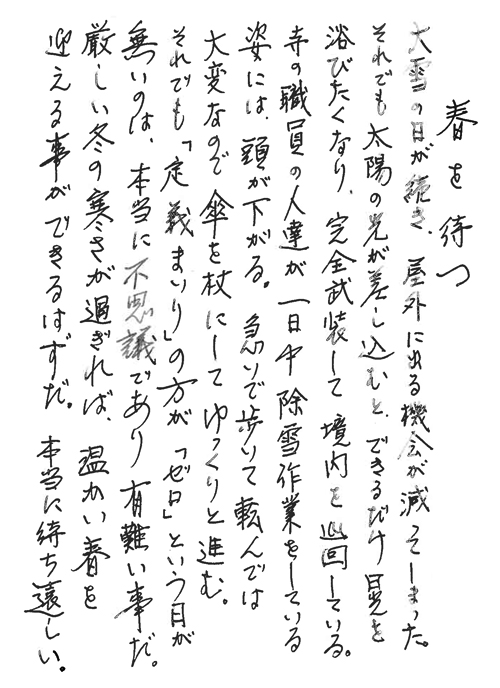 春を待つ
大雪の日が続き、屋外に出る機会が減ってしまった。
それでも太陽の光が差し込むと、できるだけ日光を
浴びたくなり、完全武装して境内を巡回している。
寺の職員の人達が一日中除雪作業をしている
姿には、頭が下がる。急いで歩いて転んでは
大変なので傘を杖にしてゆっくりと進む。
それでも「定義まいり」の方が「ゼロ」という日が
無いのは、本当に不思議であり有難い事だ。
厳しい冬の寒さが過ぎれば、温かい春を
迎える事ができるはずだ。本当に待ち遠しい。